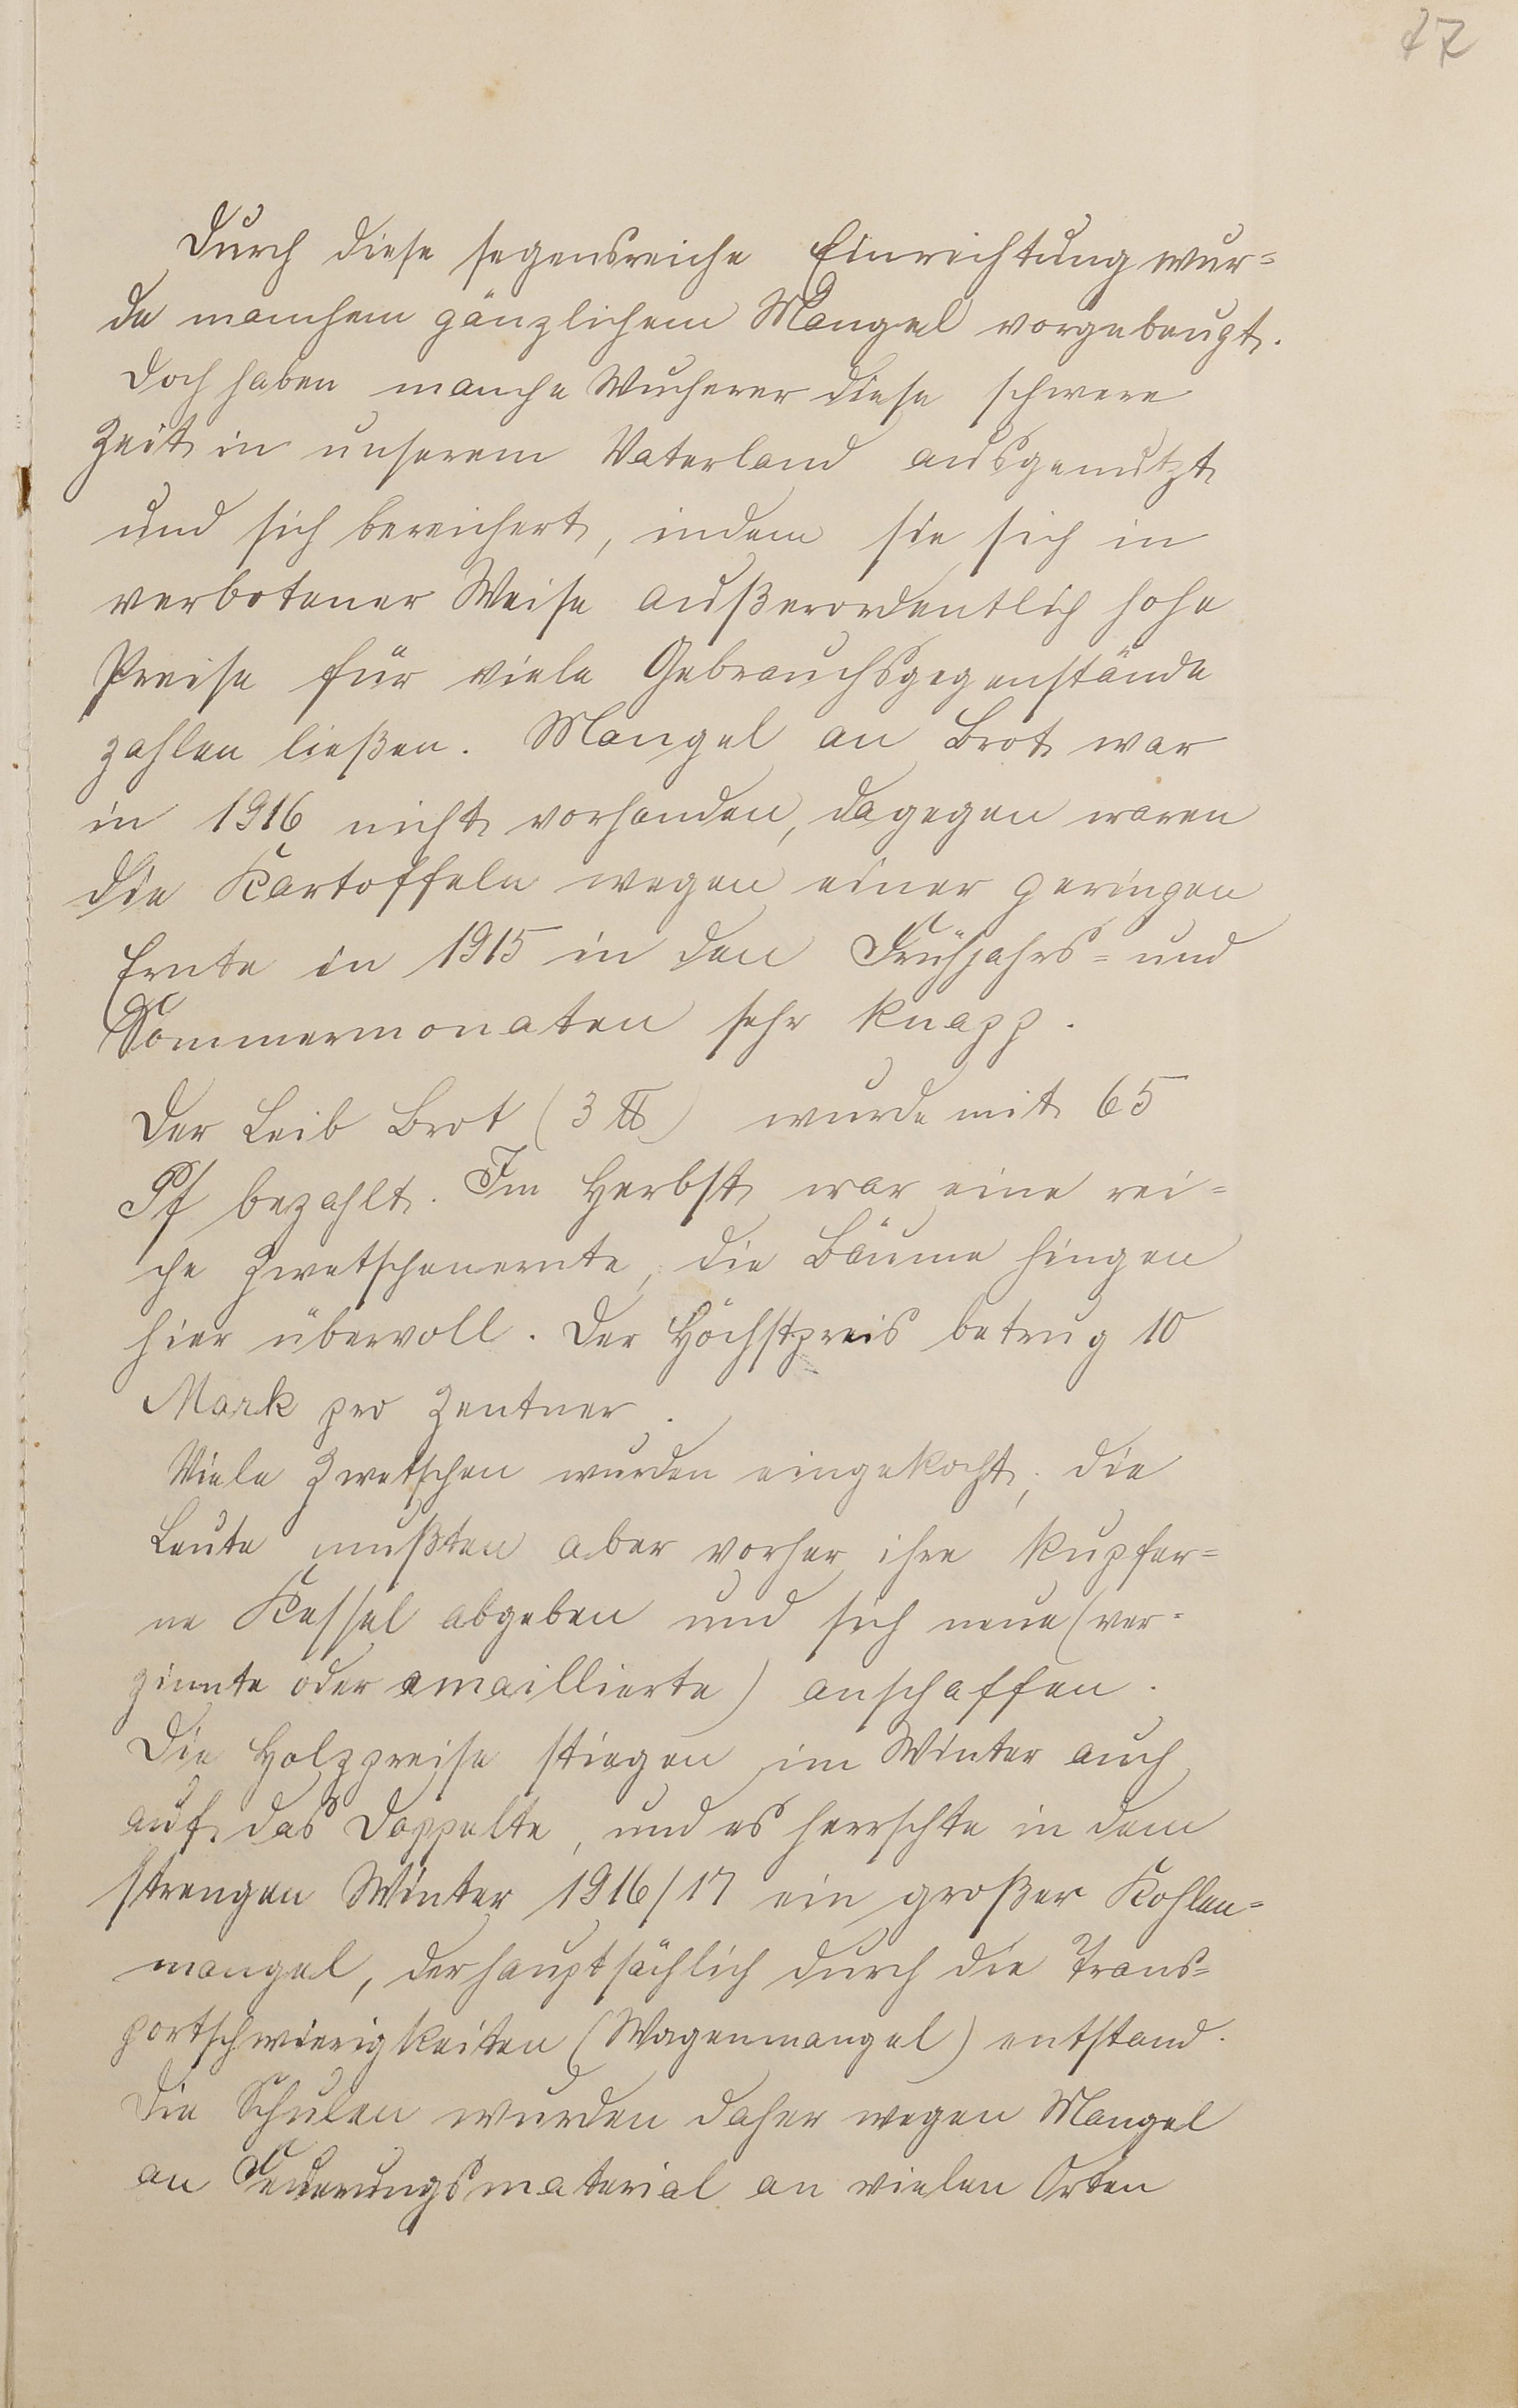 27
Durch diese segensreiche Einrichtung wur=
de manchem gänzlichem Mangel vorgebeugt.
Doch haben manche Wucherer diese schwere
Zeit in unserem Vaterland ausgenutzt
und sich bereichert, indem sie sich in
verbotener Weise außerordentlich hohe
Preise für viele Gebrauchsgegenstände
zahlen ließen. Mangel an Brot war
in 1916 nicht vorhanden, dagegen waren
die Kartoffeln wegen einer geringen
Ernte in 1915 in den Frühjahrs= und
Sommermonaten sehr knapp.
Der Leib Brot (3 ℔) wurde mit 65
Pf bezahlt. Im Herbst war eine rei=
che Zwetschenernte, die Bäume hingen
hier übervoll. Der Höchstpreis betrug 10
Mark pro Zentner.
Viele Zwetschen wurden eingekocht, die
Leute mußten aber vorher ihre kupfer=
ne Kessel abgeben und sich neue (ver=
zinnte oder emaillierte) anschaffen.
Die Holzpreise stiegen im Winter auch
auf das Doppelte, und es herrschte in dem
strengen Winter 1916/17 ein großer Kohlen=
mangel, der hauptsächlich durch die Trans=
portschwierigkeiten (Wagenmangel) entstand.
Die Schulen wurden daher wegen Mangel
an Feuerungsmaterial an vielen Orten